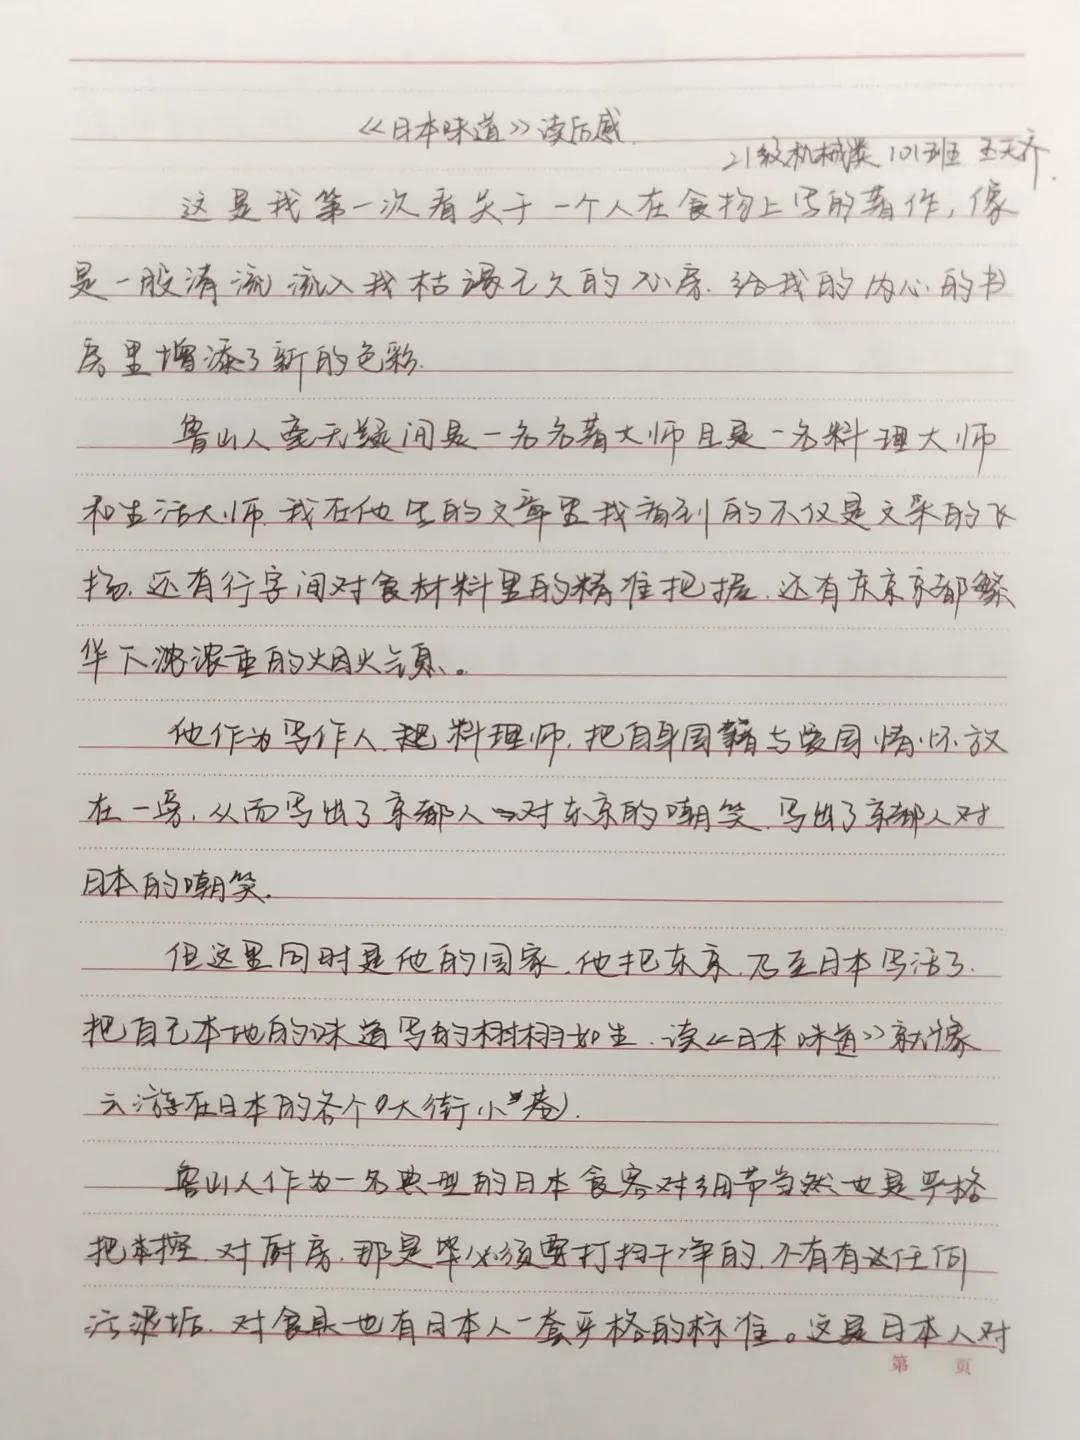 《日本味道》读后感
21级机械类101班 王天齐.
这是我第一次看关于一个人在食物上写的著作,像
是一股清流流入我枯燥已久的心房.给我的内心的书
房里增添了新的色彩.
鲁山人毫无疑问是一名名著大师且是一名料理大师
和生活大师.我在他的文章里我看到的不仅是文采的飞
扬.还有行字间对食材料里的精准把握.还有东京京都繁
华下浓重的烟火气息。
他作为写作人.料理师.把自身国籍与爱国情怀放
在一旁.从而写出了京都人对东京的嘲笑.写出了京都人对
日本的嘲笑.
但这里同时是他的国家.他把东京.乃至日本写活了.
把自己本地的味道写的栩栩如生.读《日本味道》就像
云游在日本的各个(大街小巷).
鲁山人作为一名典型的日本食客对细节当然也是严格
把控.对厨房.那是必须要打扫干净的.不有有任何
污垢.对食具也有日本人一套严格的标准。这是日本人对
第 页